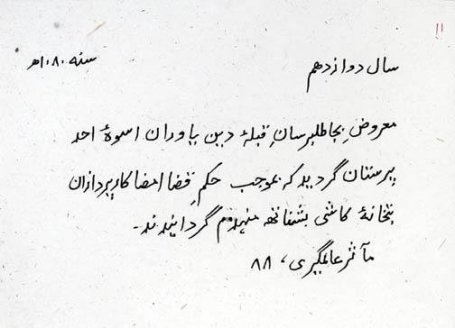 ۱۱
سال دوازدهم
سنه ۱۰۸۰ھ
معروض بجا طلبرسان قبلۂ دین یاوران اسوۂ احد
پرستان گردید که بموجب حکم قضا امضا کارپردازان
بتخانۂ کاشی بشناتھ منہدم گردانیدند۔
مآثر عالمگیری، ۸۸